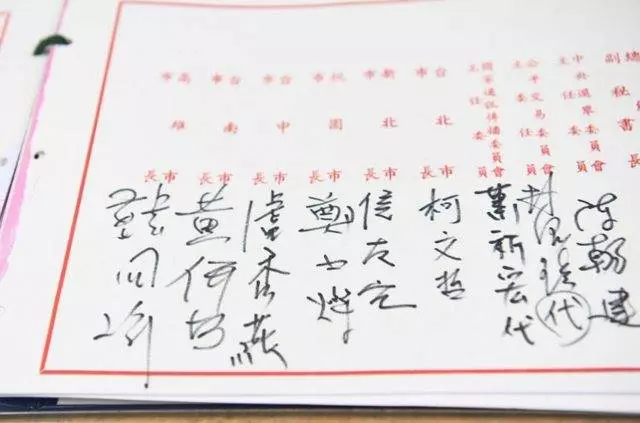 副秘書長
中央選舉委員會
主任委員
陳朝建
公平交易委員會
主任委員
代
國家通訊傳播委員會
主任委員
代
台北市市長
柯文哲
新北市市長
侯友宜
桃園市市長
鄭文燦
台中市市長
盧秀燕
台南市市長
黃偉哲
高雄市市長
韓國瑜